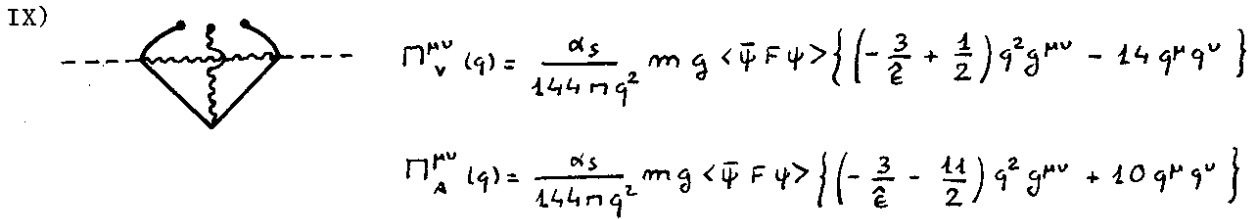 IX)
Π_V^{μν}(q) = \frac{α_s}{144 π q^2} m g <ψ̄ F ψ> { ( - \frac{3}{ε̂} + \frac{1}{2} ) q^2 g^{μν} - 14 q^μ q^ν }
Π_A^{μν}(q) = \frac{α_s}{144 π q^2} m g <ψ̄ F ψ> { ( - \frac{3}{ε̂} - \frac{11}{2} ) q^2 g^{μν} + 10 q^μ q^ν }